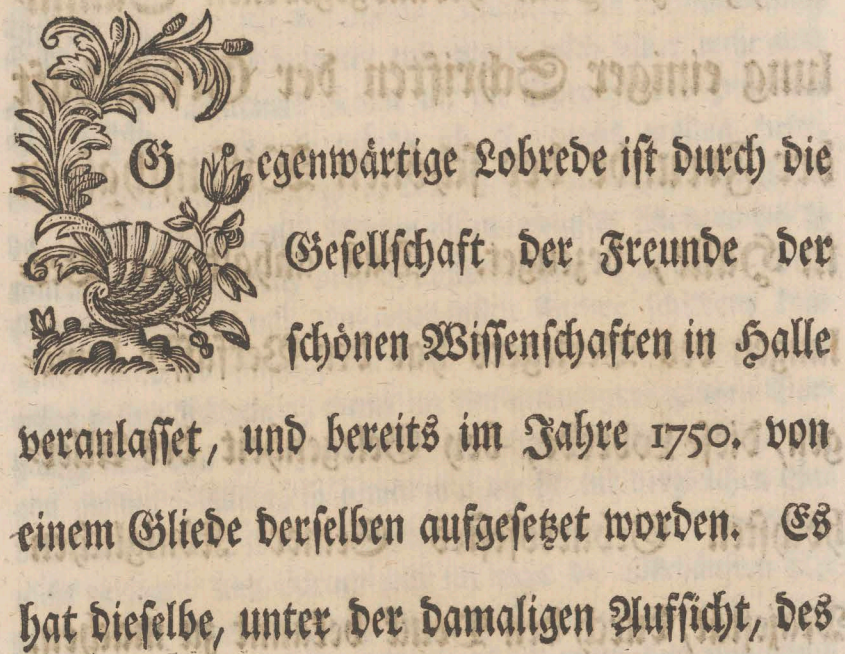 Gegenwärtige Lobrede ist durch die
Gesellschaft der Freunde der
schönen Wissenschaften in Halle
veranlasset, und bereits im Jahre 1750. von
einem Gliede derselben aufgesetzet worden. Es
hat dieselbe, unter der damaligen Aufsicht, des